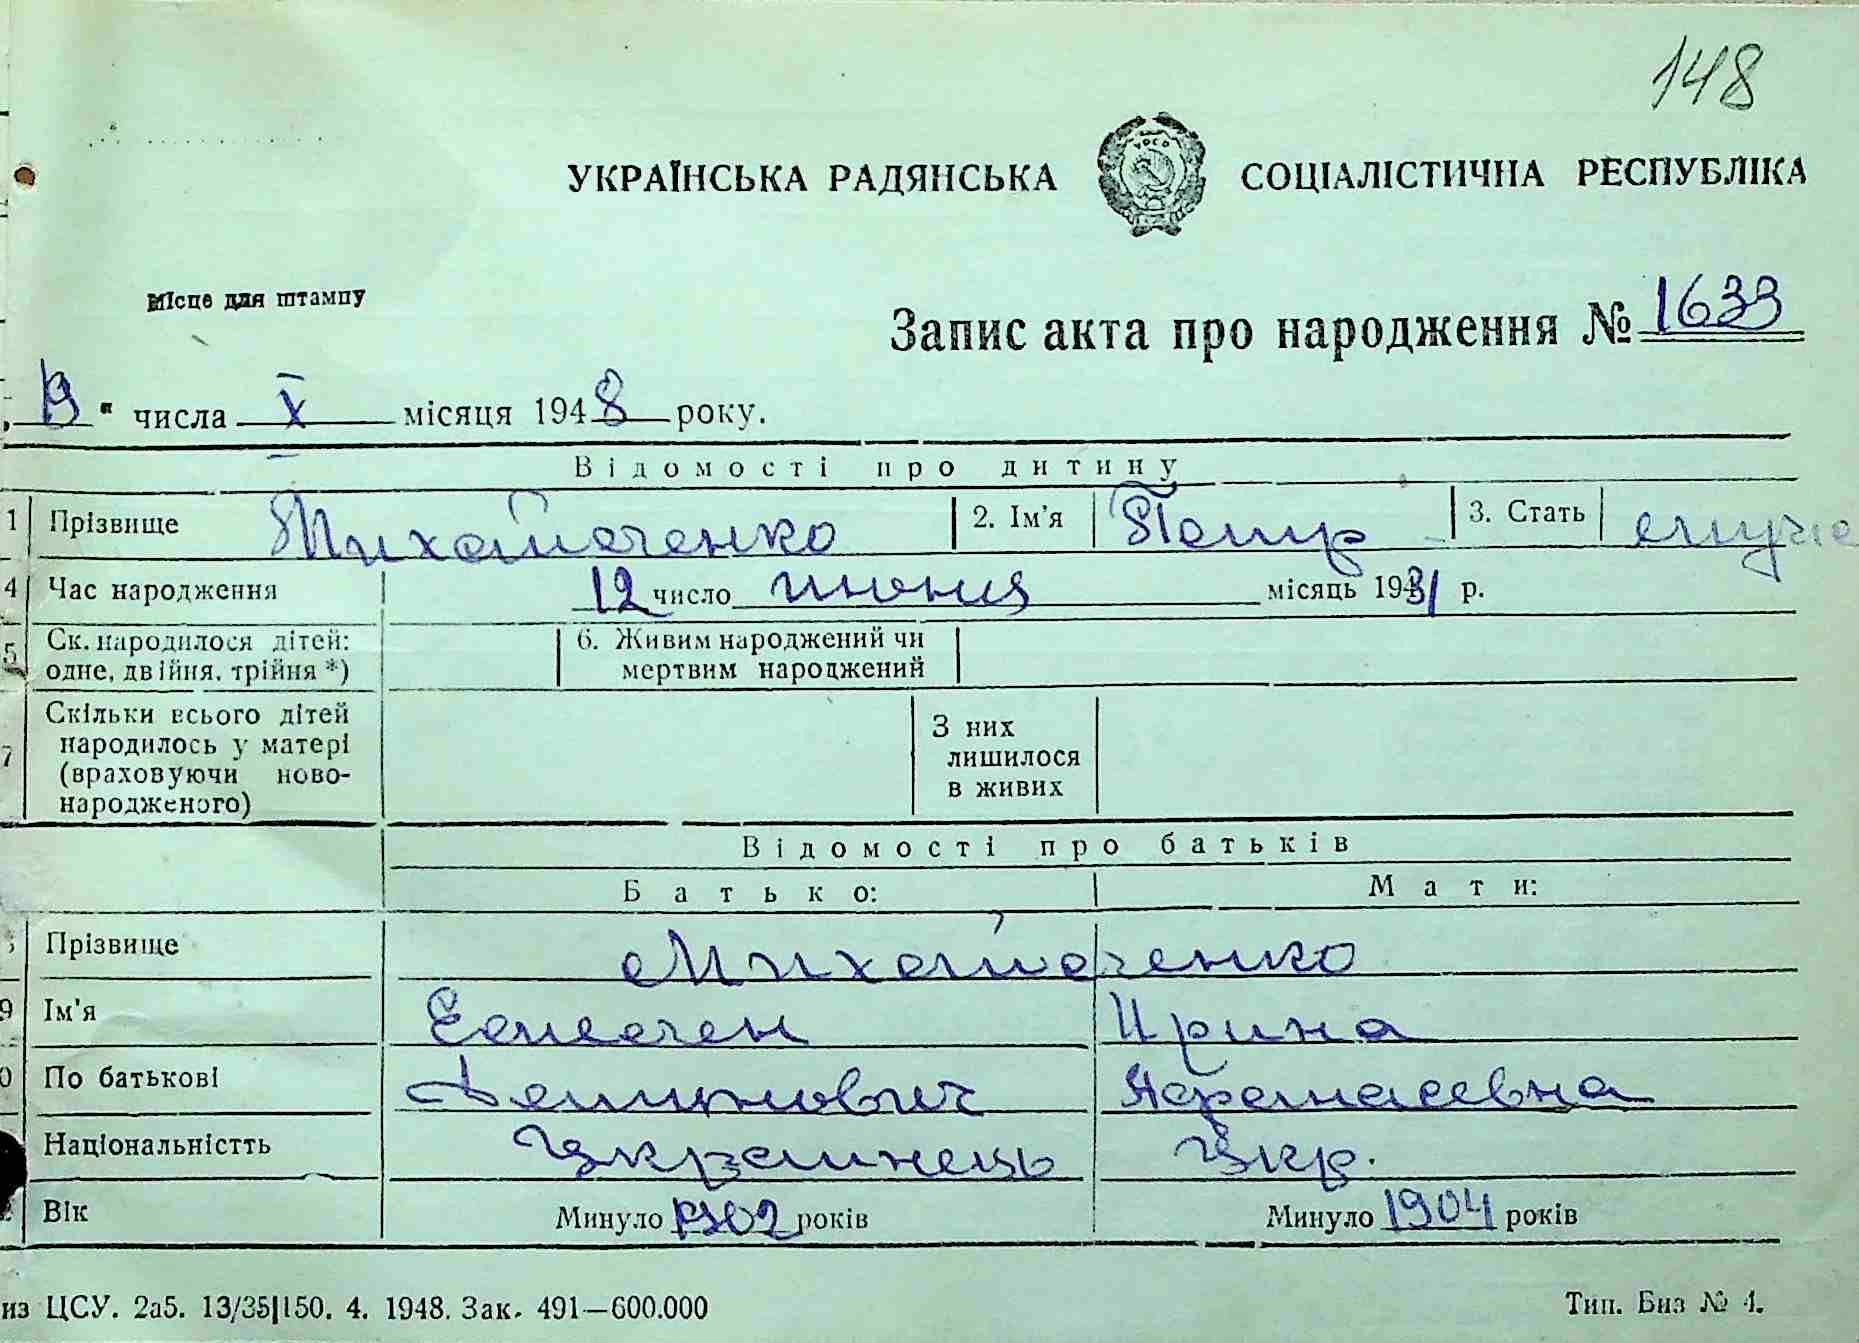 148
УКРАЇНСЬКА РАДЯНСЬКА СОЦІАЛІСТИЧНА РЕСПУБЛІКА
УРСР
Місце для штампу
Запис акта про народження № 1633
19 " числа X місяця 1948 року.
Відомості про дитину
1 Прізвище Михайличенко 2. Ім'я Петир 3. Стать
4 Час народження 12 число июня місяць 1931 р.
5 Ск. народилося дітей: 6. Живим народжений чи
одне, двійня, трійня *) мертвим народжений
Скільки всього дітей З них
7 народилось у матері лишилося
(враховуючи ново- в живих
народженого)
Відомості про батьків
Батько: Мати:
Прізвище Михайличенко
9 Ім'я Ирина
0 По батькові Афанасевна
Національністть Українець Укр.
Вік Минуло 1902 років Минуло 1904 років
из ЦСУ. 2а5. 13/35|150. 4. 1948. Зак. 491—600.000 Тип. Биз № 4.